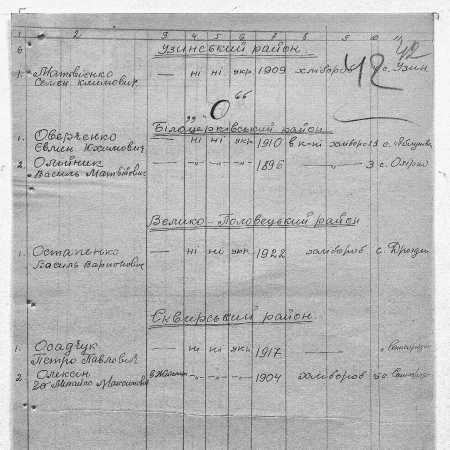 1 2 3 4 5 6 7 8 9 10 11
Узинський район.
1. Матвієнко — ні ні укр. 1909 хлібороб с. Узин
Семен Климович
42
42
„О“
Білоцерківський район
1. Оверченко — ні ні укр 1910 хлібороб 3 с.
Євмен Юхимович
2. Олійник — „ „ „ 1896 — „ — 3 с.
Василь Матвійович
Велико-Половецький район
1. Остапенко — ні ні укр 1922 хлібороб с.
Василь Варионович
Сквирський район.
1. Осадчук — ні ні укр 1917. —
Петро Павлович
2. Олексін „ „ „ 1904 хлібороб
Михайло Максимович